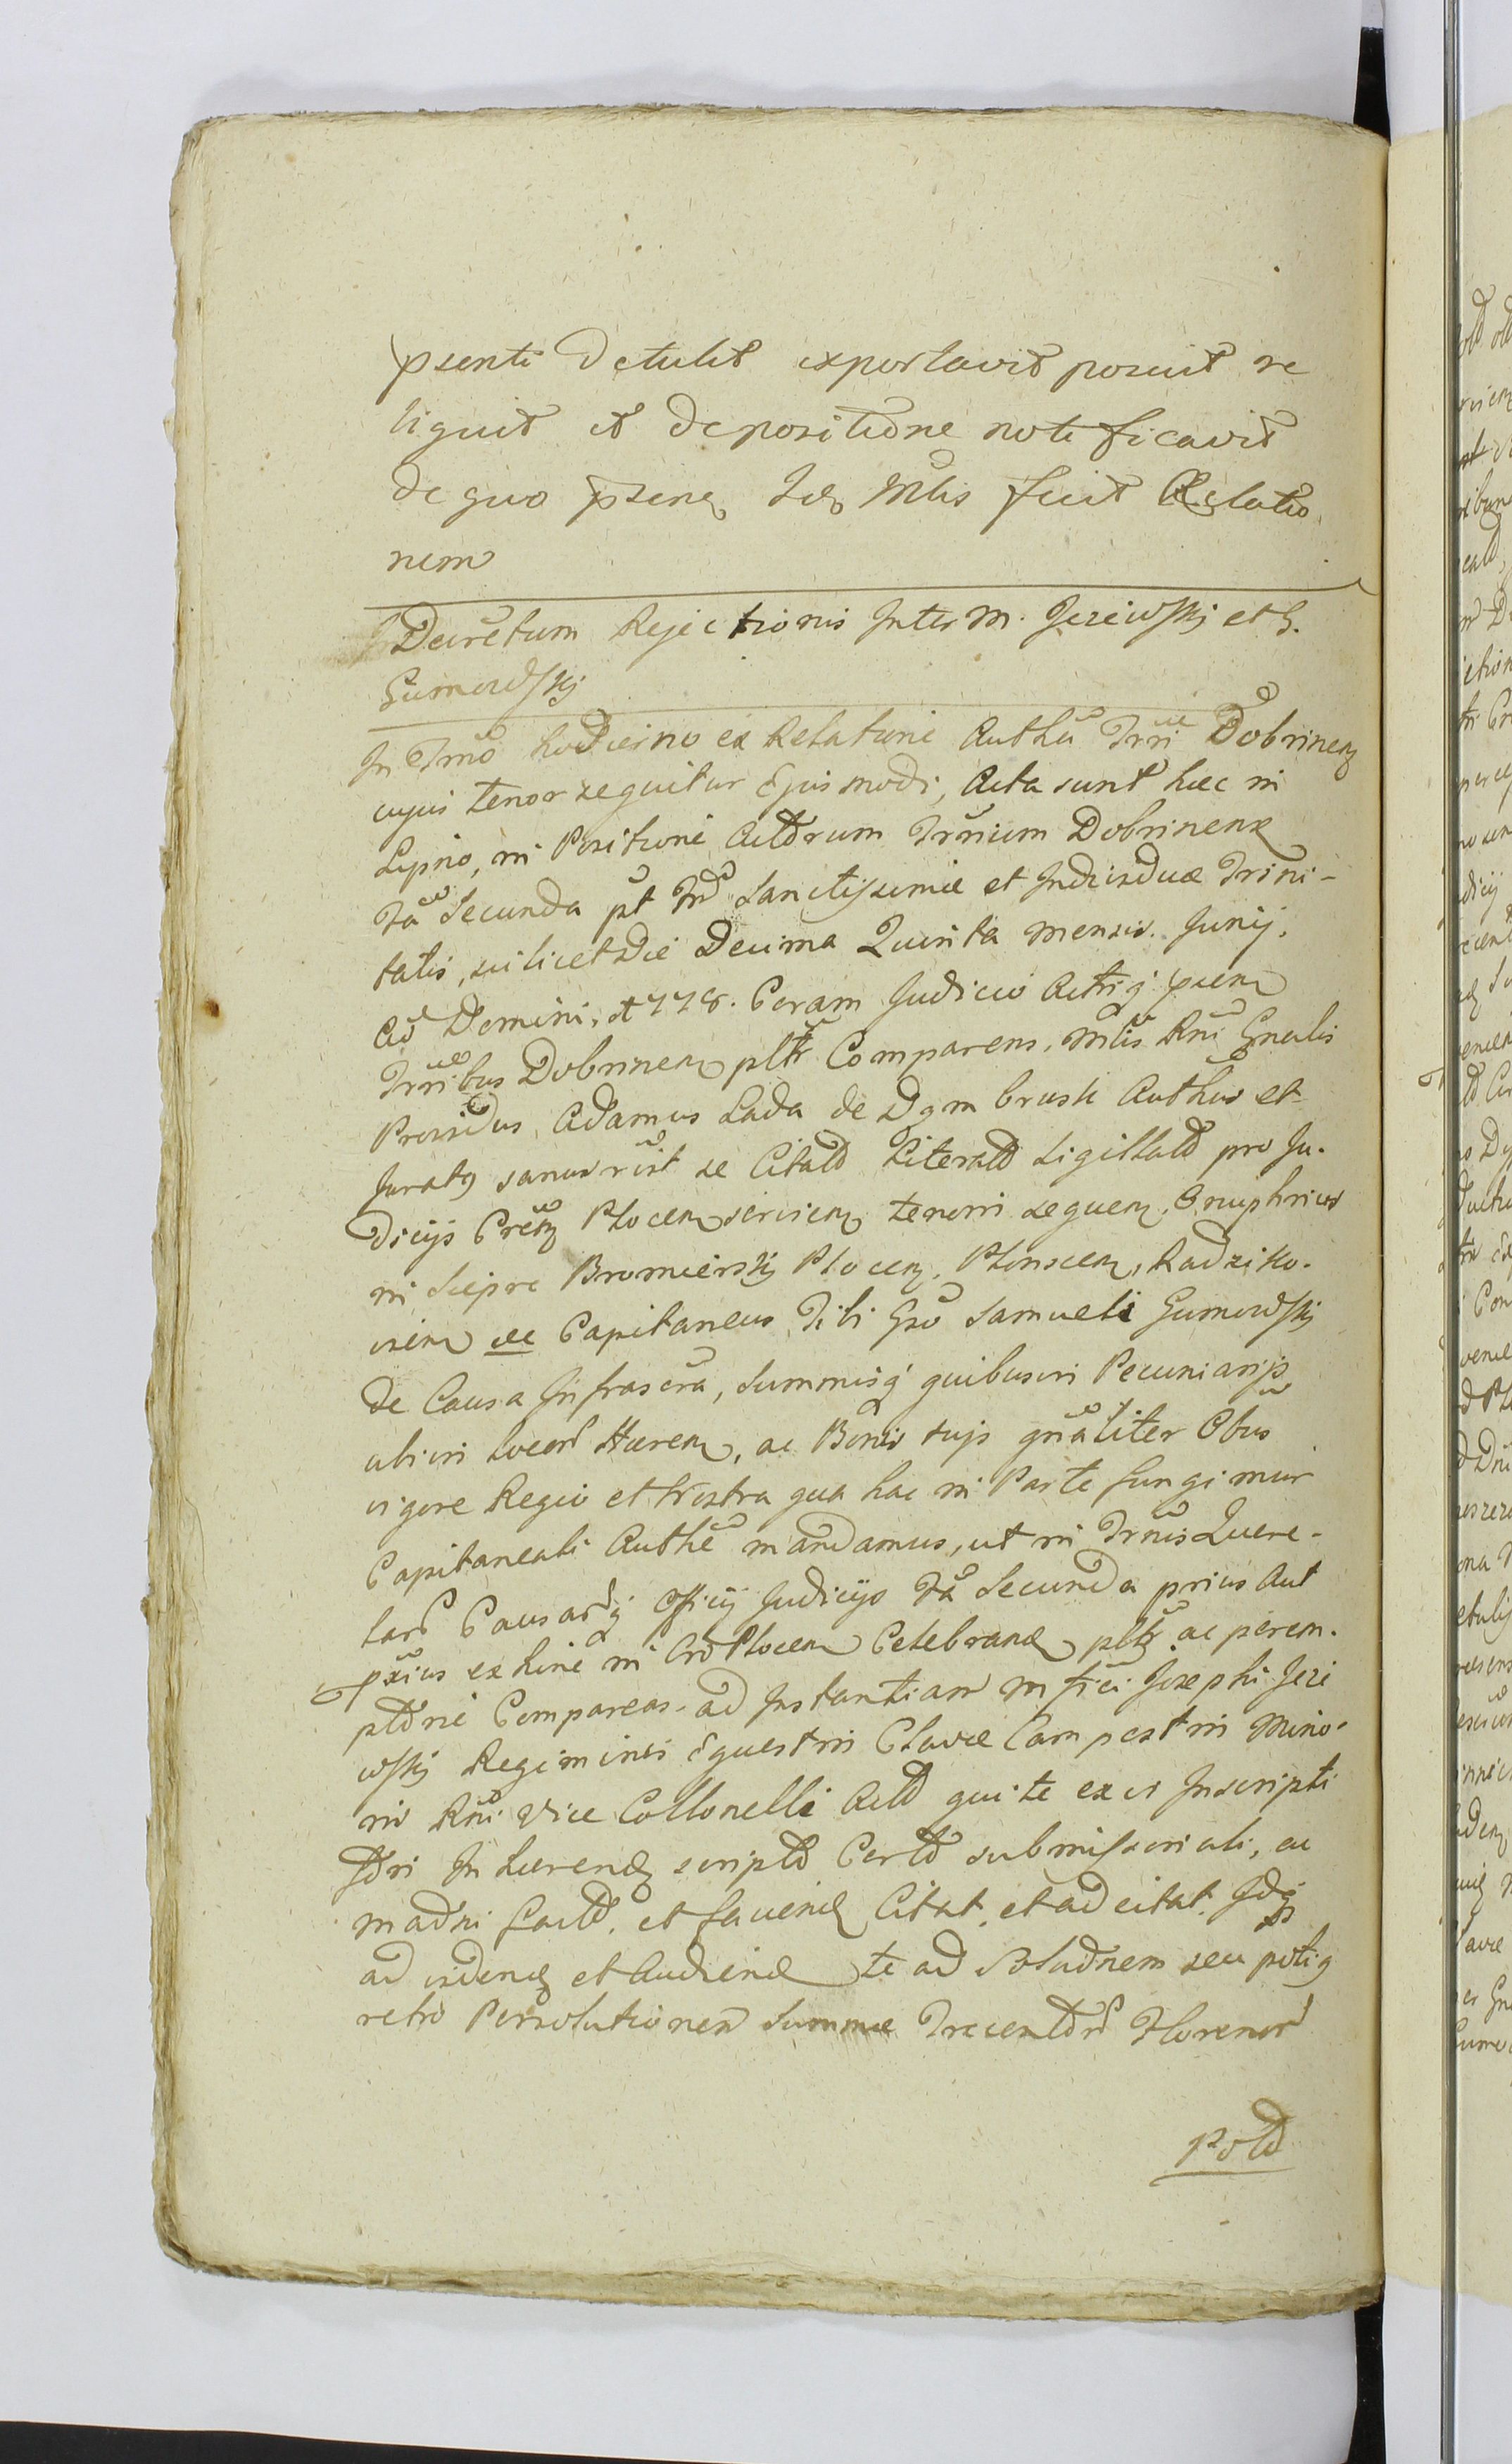 psenti detulit exportavit posuit re
liquit et depositione notificavit
de quo psens Idem Mlis fecit Relatio
nem
Decretum Rejectionis Inter M. Jezewskij et G.
Gumowskij
In Trno hodierno ex Relatione Authen Trri Dobrinen
cujus tenor sequitur Ejusmodi, Acta sunt haec in
Lipno, in Positione Actorum Trrium Dobrinens
Fa Secunda pt Fm Sanctissimae et Individuae Trini-
tatis, scilicet die Decima Quinta mensis Junij.
Ao Domini 1778. Coram Judicio Actisq psen
Trribus Dobrinen pltr Comparens, Mlis Rni Gnalis
Providus Adamus Lada de Dgm Bruski Authus et
Juratq sanus rist se Citatt Literatt Sigillatt pro Ju-
dicijs Cren Plocen servien tenoris sequen. Onuphrius
in Sieprc Bromierskij Plocen, Plonscen, Radziko-
vien etc Capitaneus, Tibi Gso Samueli Gumowskij
de Causa Infrascra, Summisq quibusvis Pecuniarijs
ubivis locor Haeren, ac Bonis tuis gnaliter Obus
vigore Regia et Nostra qua hac in Parte fungimur
Capitaneali Authe mandamus, ut in Trnis Quere-
lar Causarq Officij Judicijs Fa Secunda prius aut
pxius ex hinc in Cro Plocen Celebrand pltr ac perem-
ptorie Compareas. ad Instantiam Mfici Josephi Jeze
wskij Regiminis Equestris Clavae Campestris Mino-
ris Rni Vice Collonelli Actt qui te ex vi Inscripti
ssri Inhaerend scripto Certo submissoriali, ac
madri facto, et faciend Citat, et adcitat, Idq
ad vidend et Audiend te ad Solutionem seu potiq
retro Persolutionem Summae Trecentor Florenor
Poltt